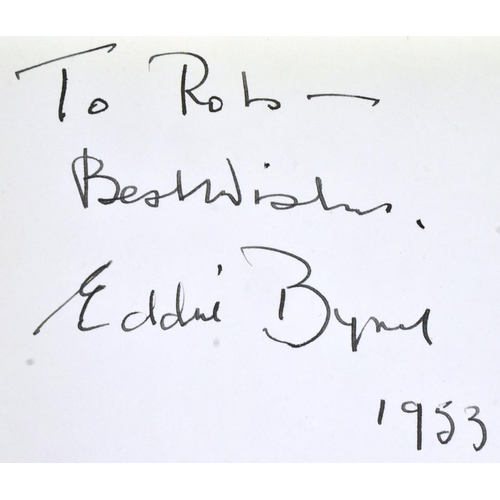 To Rob —
Best Wishes.
Eddie Byrne
1953